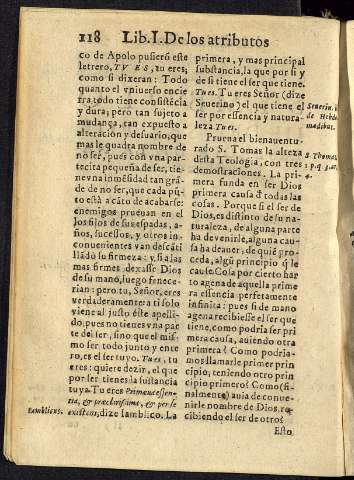 118 Lib. I. De los atributos
co de Apolo pusiero este
letrero, TV ES, tu eres;
como si dixeran: Todo
quanto el vniuerso encie
rra, todo tiene consistẽcia
y dura; pero tan sujeto a
mudança, tan expuesto a
alteracion y desuario, que
mas le quadra nombre de
no ser, pues con vna par-
tecita pequeña de ser, tie-
ne vna inmẽsidad tan grã-
de de no ser, que cada pũ-
to està a cãto de acabarse:
enemigos prueuan en el
los filos de sus espadas, a-
ños, sucessos, y otros in-
conuenientes van descãti
llãdo su firmeza: y si a las
mas firmes dexasse Dios
de su mano, luego fenece-
rian: pero tu, Señor, eres
verdaderamente; a ti solo
viene al justo este apelli-
do, pues no tienes vna par
te del ser, sino que el mis-
mo ser todo junto y ente
ro, es el ser tuyo. Tues, tu
eres: quiere dezir, el que
por ser tienes la sustancia
tuya. Tu eres Primaua essen-
tia, & præclarissima, & per se
Iamblicus. existens, dize Iamblico. La
primera, y mas principal
substancia, la que por si y
de si tiene el ser que tiene.
Tues. Tu eres Señor (dize
Seuerino) el que tiene el
ser por essencia y natura-
leza Tues.
Seuerin. li
de Hebdo
madibus.
Prueua el bienauentu-
rado S. Tomas la alteza
desta Teologia, con tres
demostraciones. La pri-
mera funda en ser Dios
primera causa d todas las
cosas. Porque si el ser de
Dios, es distinto de su na-
turaleza, de alguna parte
ha de venirle, alguna cau-
sa ha de auer, de quiẽ pro-
ceda, algũ principio q le
cause. Cola por cierto har
to agena de aquella prime
ra essencia perfetamente
infinita: pues si de mano
agena recibiesse el ser que
tiene, como podria ser pri
mera causa, auiendo otra
primera? Como podria-
mos llamarle primer prin
cipio, teniendo otro prin
cipio primero? Como (fi-
nalmente) auia de conue-
nirle nombre de Dios, re-
cibiendo el ser de otro?
S. Thomas,
4.
Esto